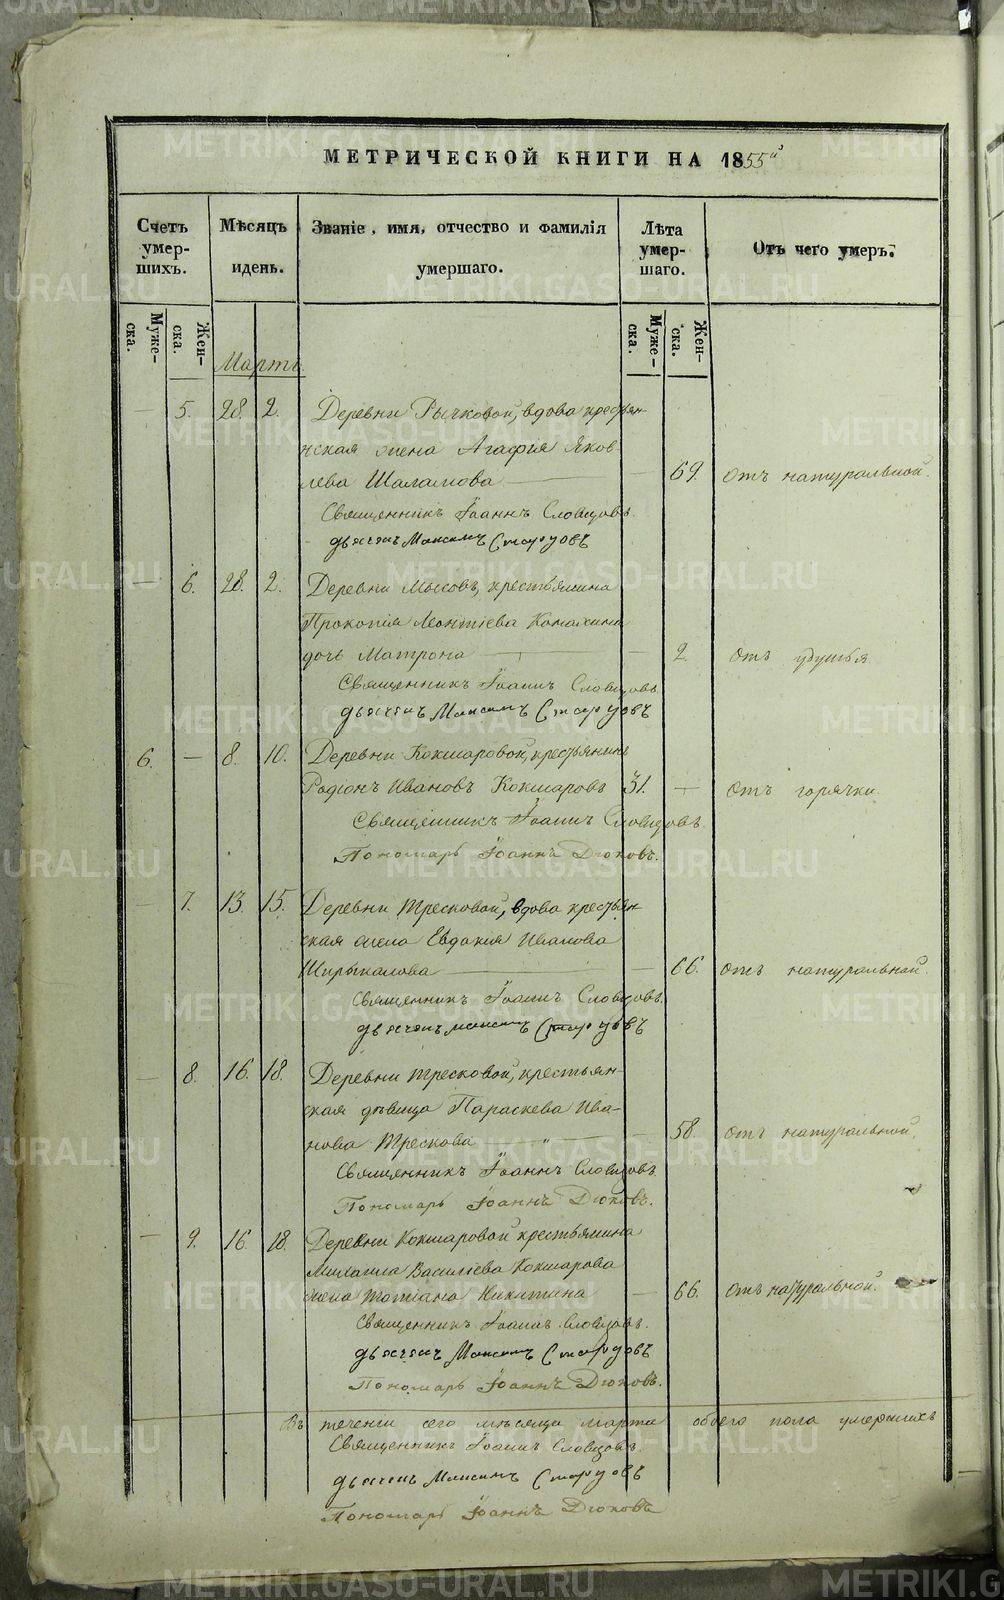 МЕТРИЧЕСКОЙ КНИГИ НА 1855й
Счетъ умер-шихъ.
Мѣсяцъ идень.
Званіе, имя, отчество и фамилія умершаго.
Лѣта умер-шаго.
Отъ чего умеръ.
Муже-ска.
Жен-ска.
Муже-ска.
Жен-ска.
Мартъ
— 5. 28. 2. Деревни Рычковой, вдова крестьян-
нская жена Агафія Яков-
лева Шаламова — 69. отъ натуральной.
Священникъ Іоаннъ Словцовъ.
дьячекъ Максимъ Стародовъ
— 6. 28. 2. Деревни Мысовъ, крестьянина
Прокопія Леонтіева
дочь Матрона — 2. отъ удушья
Священникъ Іоаннъ Словцовъ
дьячекъ Максимъ Стародовъ
6. — 8. 10. Деревни Кокшаровой, крестьянинъ
Родіонъ Ивановъ Кокшаровъ 31. — отъ горячки.
Священникъ Іоаннъ Словцовъ.
Пономарь Іоаннъ Дюковъ.
— 7. 13. 15. Деревни Тресковой, вдова крестьян-
ская жена Евдокія Иванова
Ширыкалова — 66. отъ натуральной.
Священникъ Іоаннъ Словцовъ.
дьячекъ Максимъ Стародовъ
— 8. 16. 18. Деревни Тресковой, крестьян-
ская дѣвица Параскева Ива-
нова Трескова — " — 58. отъ натуральной.
Священникъ Іоаннъ Словцовъ
Пономарь Іоаннъ Дюковъ.
— 9. 16. 18. Деревни Кокшаровой крестьянина
Михаила Василіева Кокшарова
жена Татіана Никитина — 66. отъ натуральной.
Священникъ Іоаннъ Словцовъ.
дьячекъ Максимъ Стародовъ
Пономарь Іоаннъ Дюковъ.
Въ теченіи сего мѣсяца марта обоего пола умершихъ
Священникъ Іоаннъ Словцовъ.
дьячекъ Максимъ Стародовъ
Пономарь Іоаннъ Дюковъ
METRIKI.GASO-URAL.RU